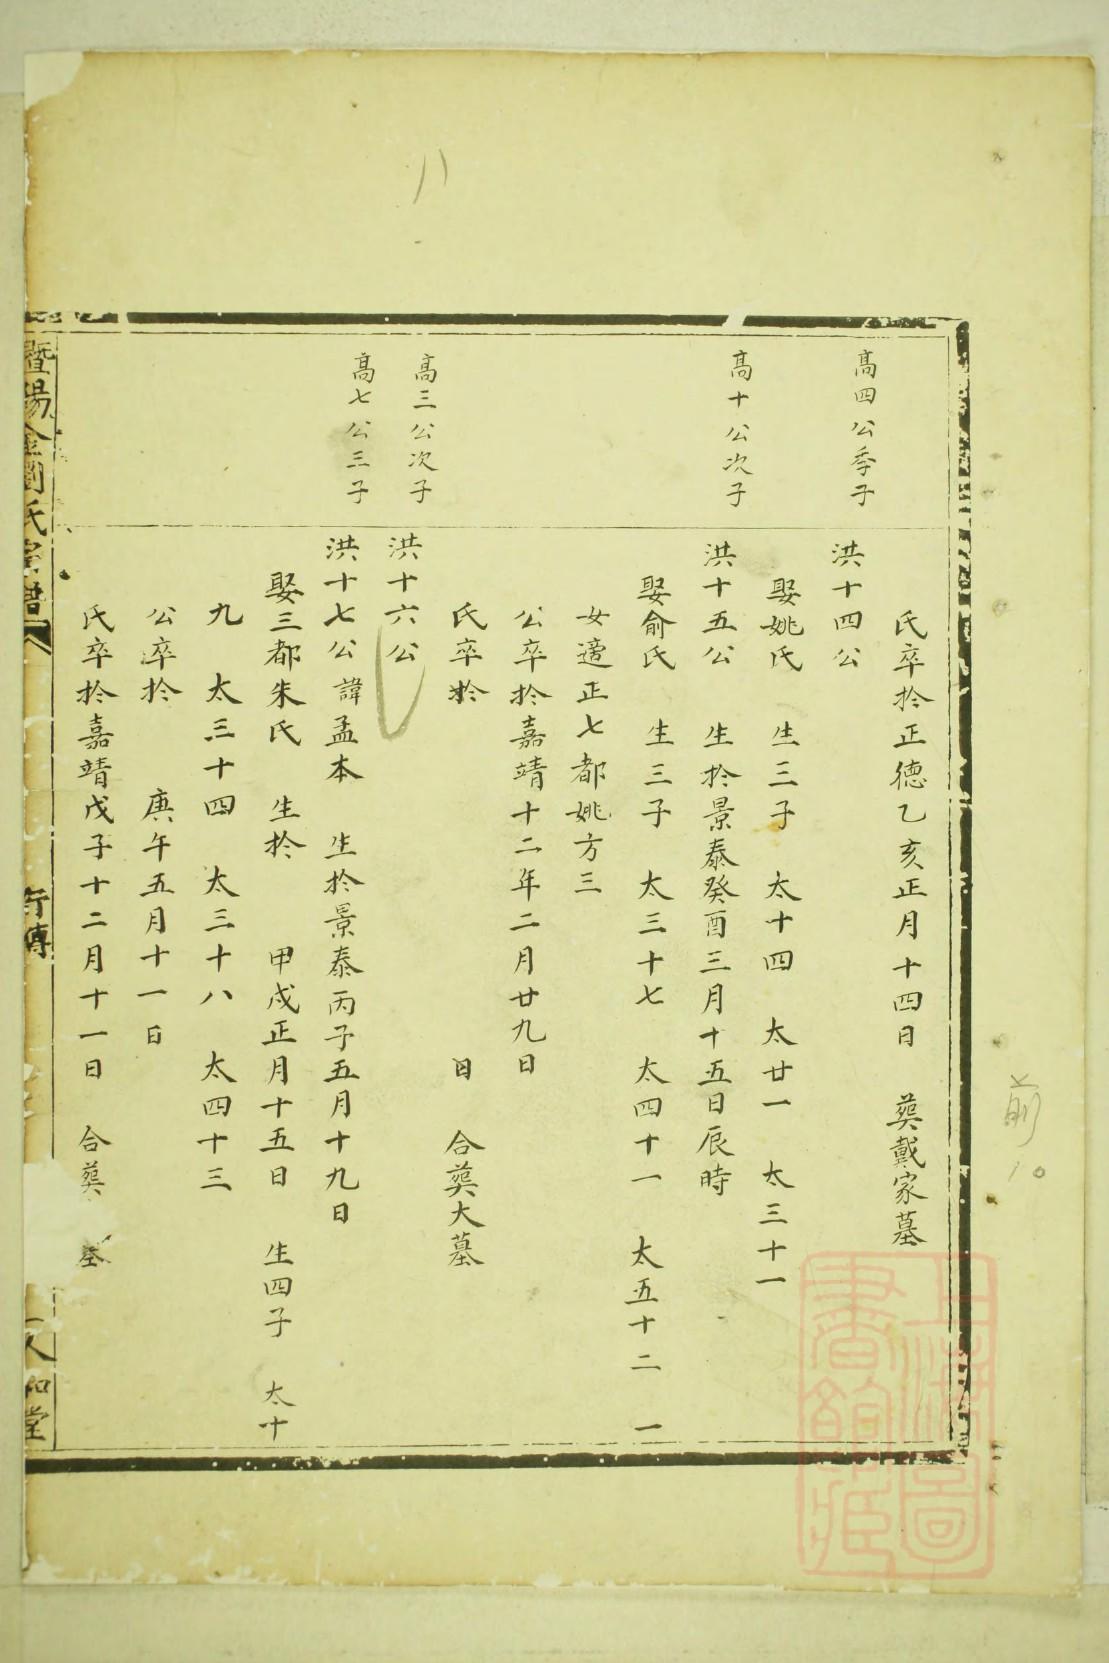 氏卒扵正德乙亥正月十四日 葬戴家墓
高四公季子
洪十四公
娶姚氏 生三子 太十四 太廿一 太三十一
高十公次子
洪十五公 生扵景泰癸酉三月十五日辰時
娶俞氏 生三子 太三十七 太四十一 太五十二 一
女適正七都姚方三
公卒扵嘉靖十二年二月廿九日
氏卒扵 日 合葬大墓
高三公次子
洪十六公
高七公三子
洪十七公諱孟本 生扵景泰丙子五月十九日
娶三都朱氏 生扵 甲戌正月十五日 生四子 太十
九 太三十四 太三十八 太四十三
公卒扵 庚午五月十一日
氏卒扵嘉靖戊子十二月十一日 合葬 墓
暨陽金澗氏宗譜
行傳
和堂
八
前10
上海圖書館藏